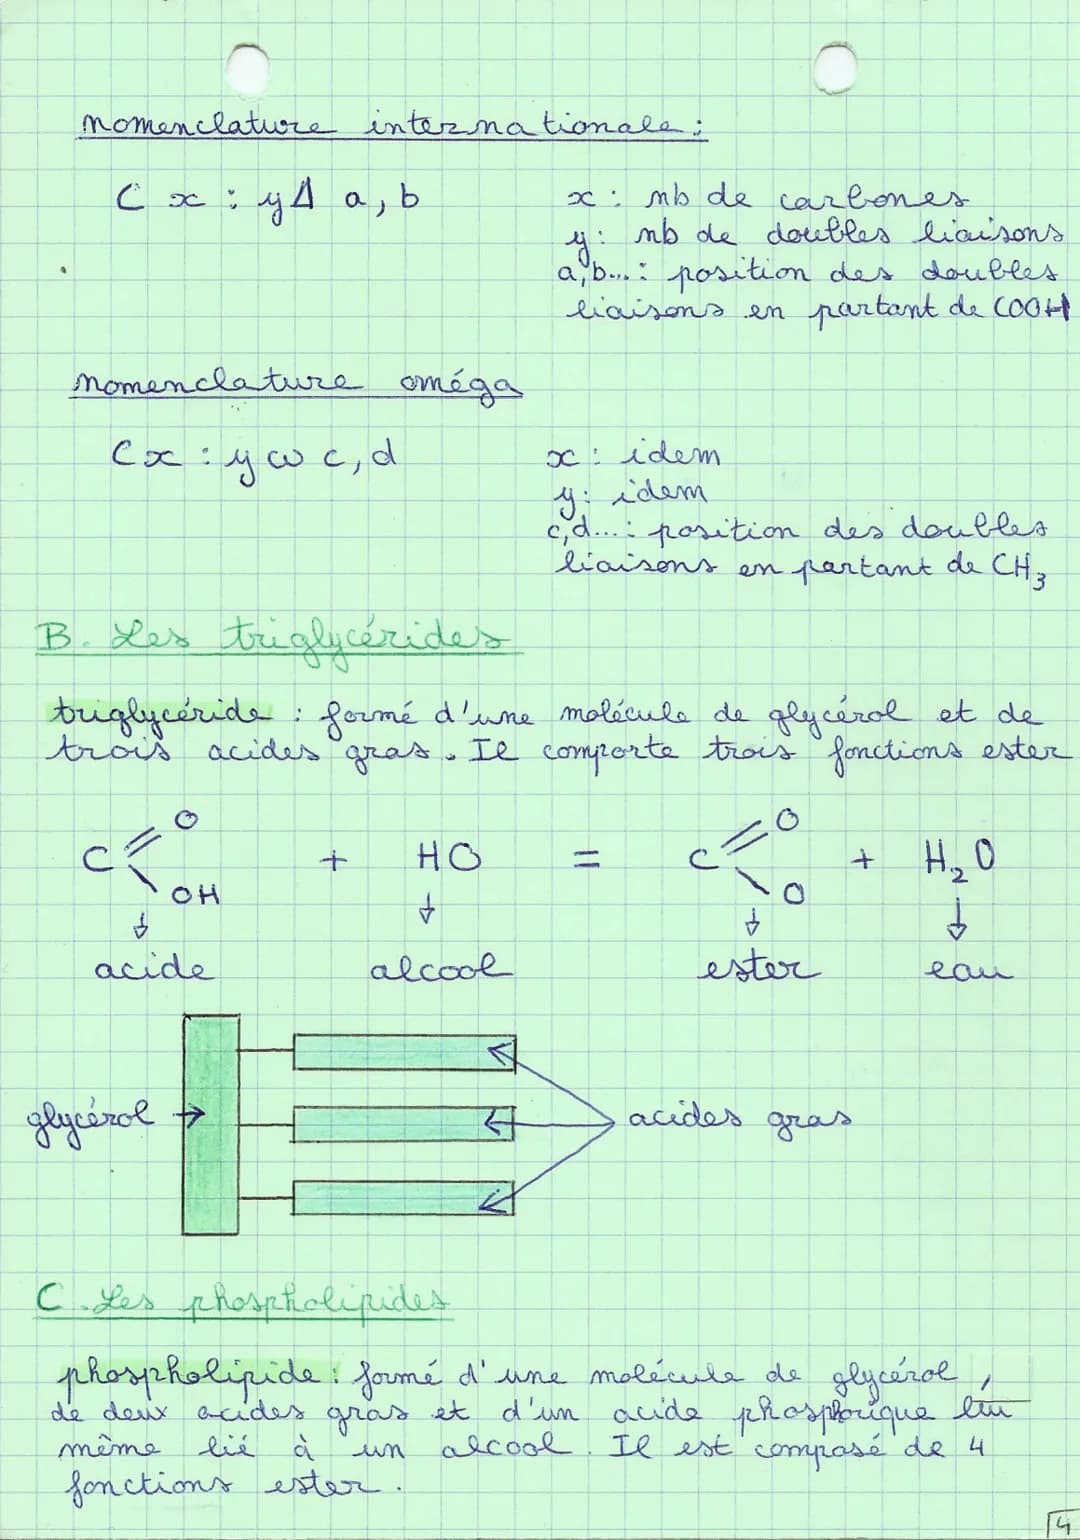 nomenclature internationale :
C x : y Δ a, b
x : nb de carbones
y : nb de doubles liaisons
a, b... : position des doubles
liaisons en partant de COOH
nomenclature oméga
Cx : y ω c, d
x : idem
y : idem
c, d... : position des doubles
liaisons en partant de CH₃
B. Les triglycérides
triglycéride : formé d'une molécule de glycérol et de
trois acides gras. Il comporte trois fonctions ester
C O OH + HO = C O O + H₂O
acide alcool ester eau
glycérol
acides gras
C. Les phospholipides
phospholipide : formé d'une molécule de glycérol,
de deux acides gras et d'un acide phosphorique lui
même lié à un alcool. Il est composé de 4
fonctions ester.
4